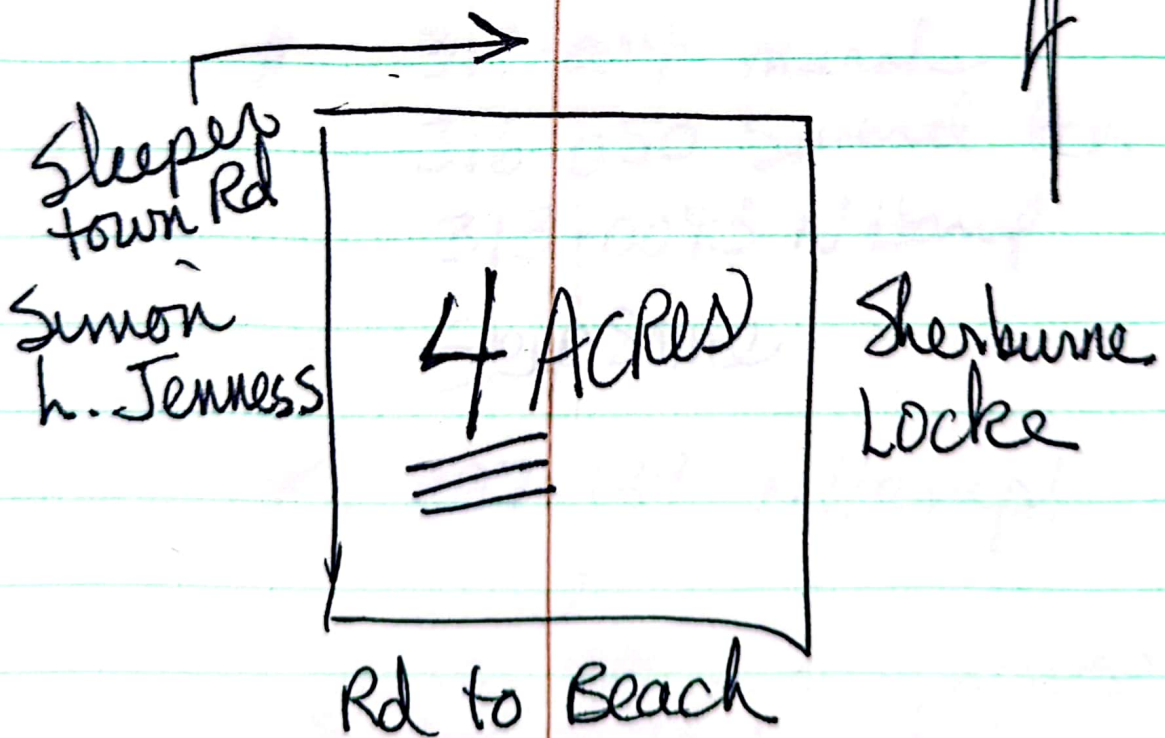 Sleeper
town Rd
Simon
L. Jenness
4 ACRes
Sherburne
Locke
Rd to Beach